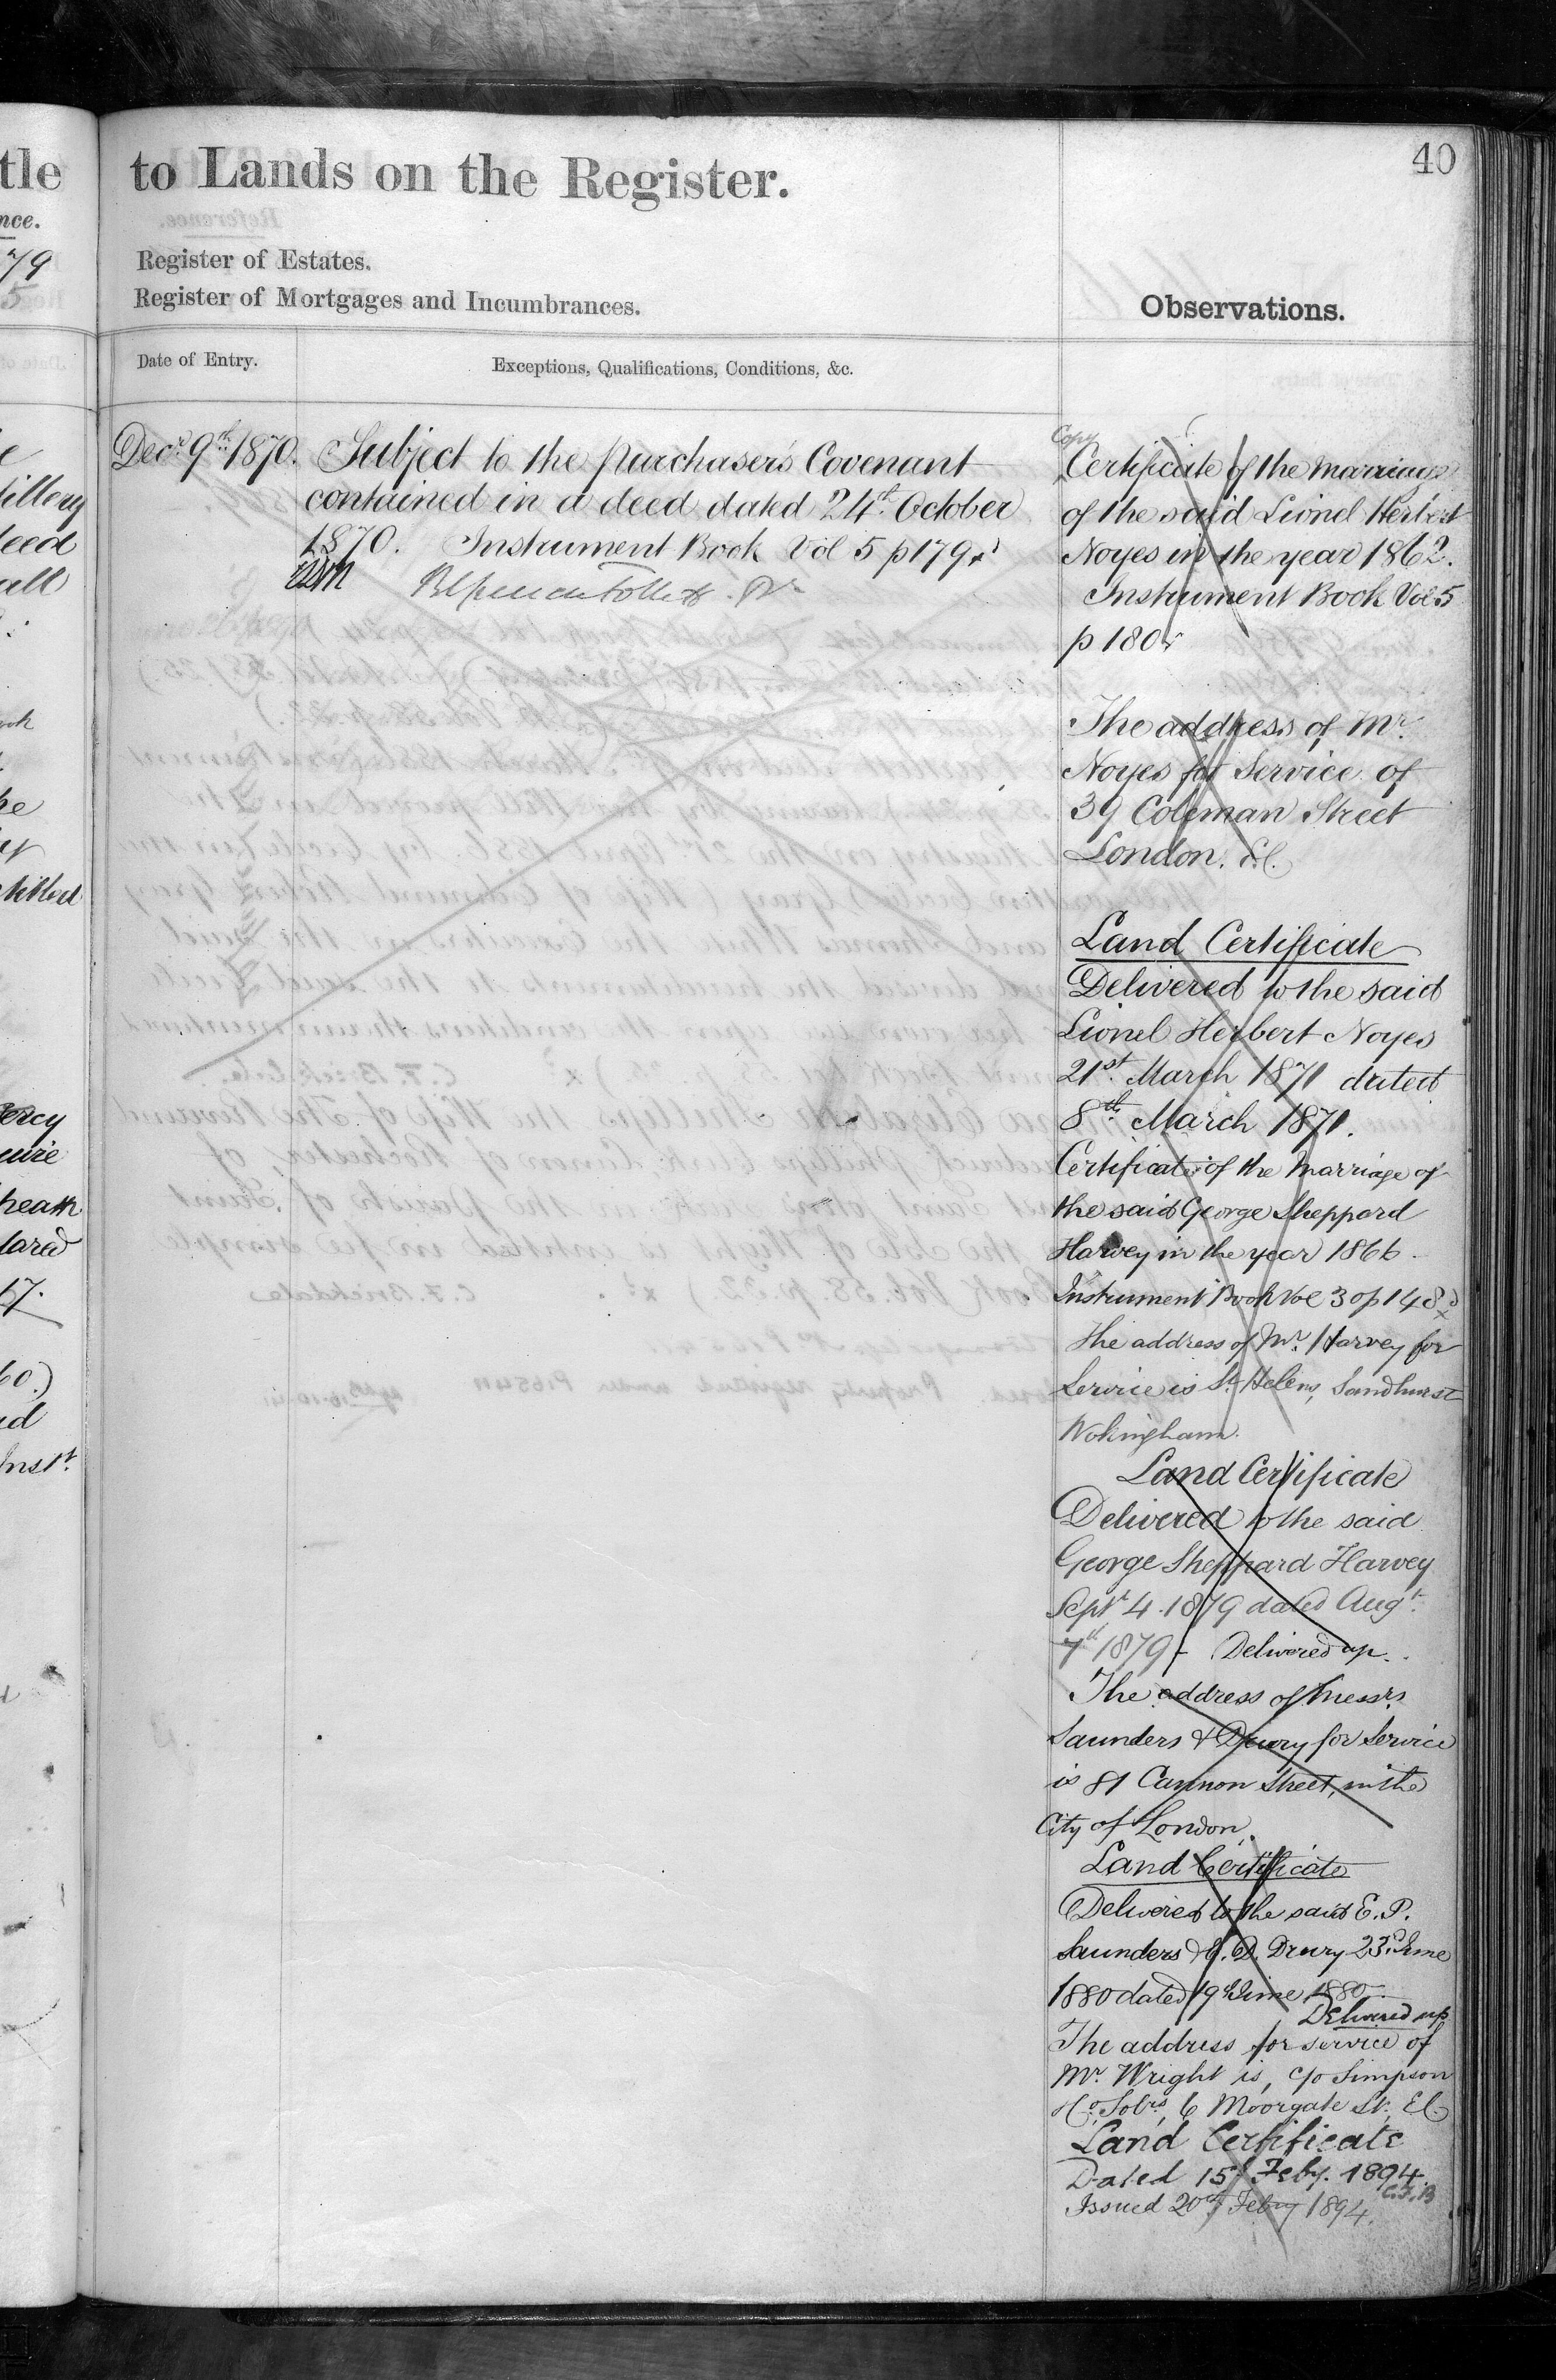 tle
nce.
79
5
to Lands on the Register.
40
Register of Estates.
Register of Mortgages and Incumbrances.
Observations.
Date of Entry.
Exceptions, Qualifications, Conditions, &c.
Decr 9th 1870.
Subject to the purchaser's Covenant
contained in a deed dated 24th October
1870. Instrument Book Vol 5 p 179
Copy
Certificate of the marriage
of the said Lionel Herbert
Noyes in the year 1862.
Instrument Book Vol 5
p 180
The address of Mr
Noyes for Service of
39 Coleman Street
London. E.C.
Land Certificate
Delivered to the said
Lionel Herbert Noyes
21st March 1871 dated
8th March 1871.
Certificate of the Marriage of
the said George Sheppard
Harvey in the year 1866.
Instrument Book Vol 30 p 148
The address of Mr Harvey for
Service is St Helens, Sandhurst
Wokingham.
Land Certificate
Delivered to the said
George Sheppard Harvey
Sept 4. 1879 dated Augt
7th 1879 - Delivered up.
The address of Messrs
Saunders & Drury for Service
is 81 Cannon Street, in the
City of London.
Land Certificate
Delivered to the said E. P.
Saunders & G. D. Drury 23d June
1880 dated 19th June 1880
Delivered up
The address for service of
Mr Wright is, c/o Simpson
& Co Solrs, 6 Moorgate St. E.C.
Land Certificate
Dated 15 Feby. 1894.
C.F.B
Issued 20th Feby 1894.